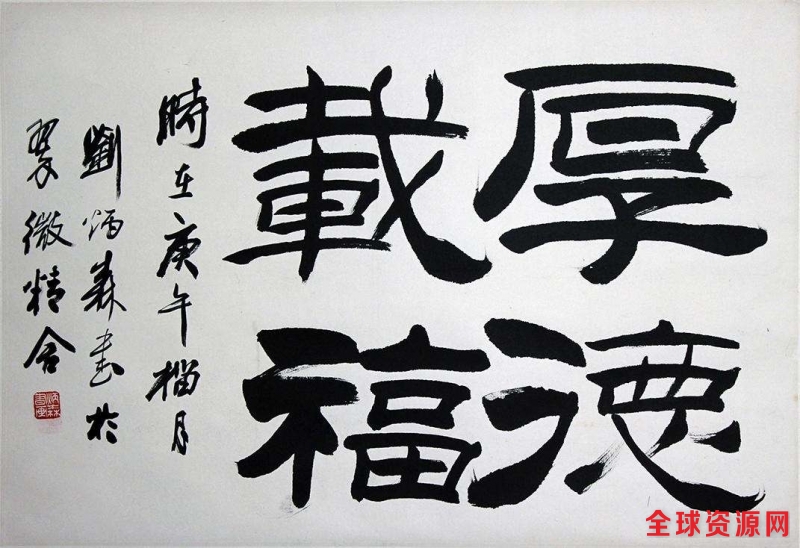 厚德
載福
時在庚午榴月
劉炳森書於
翠微精舍
全球资源网